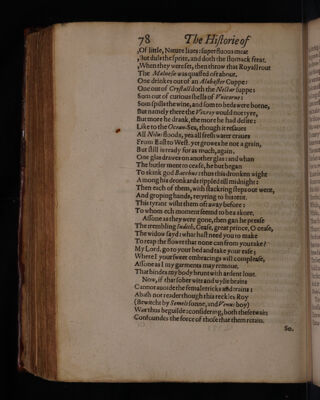 78 The Historie of
Of little, Nature liues: superfluous meat
But duls the sprite, and doth the stomack freat.
When they were set, then throw that Royall rout
The Maluesie was quaffed oft about.
One drinkes out of an Alabaster Cuppe:
One out of Crystall doth the Nectar suppe:
Som out of curious shells of Vnicorne:
Som spills the wine, and som to beds were borne,
But namely there the Viceroy would not tyre,
But more he drank, the more he had desire:
Like to the Ocean-Sea, though it resaues
All Nilus floods, yea all fresh water craues
From East to West, yet growes he not a grain,
But still is ready for as much, again.
One glas drawes on another glas: and whan
The butler ment to cease, he but began
To skink god Bacchus: thus this dronken wight
Among his dronkards tippled till midnight:
Then each of them, with stackring steps out went,
And groping hands, retyring to his tent.
This tyrant wisht them oft away before:
To whom each moment seemd to be a skore.
Assone as they were gone, then gan he prease
The trembling Iudith, Cease, great prince, O cease,
The widow sayd: what hast need you to make
To reap the flower that none can from you take?
My Lord, go to your bed and take your ease;
Where I your sweet embracings will complease,
Assone as I my garments may remoue,
That binds my body brunt with ardent loue.
Now, if that sober wits and wylie brains
Cannot auoide the female tricks and trains:
Abash not reader though this reckles Roy
(Bewitcht by Semels sonne, and Venus boy)
War thus beguilde: considering, both these twain
Confoundes the force of those that them retain.
So.